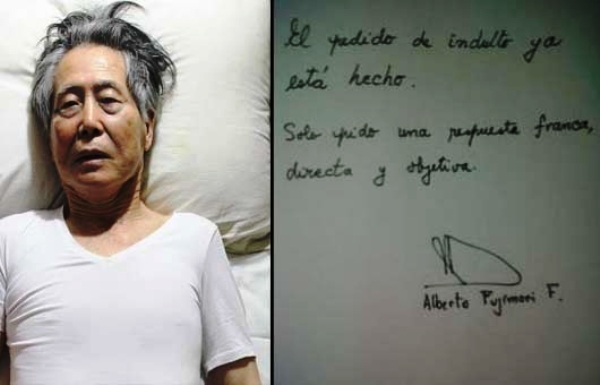 El pedido de indulto ya
está hecho.
Solo pido una respuesta franca,
directa y objetiva.
Alberto Fujimori F.